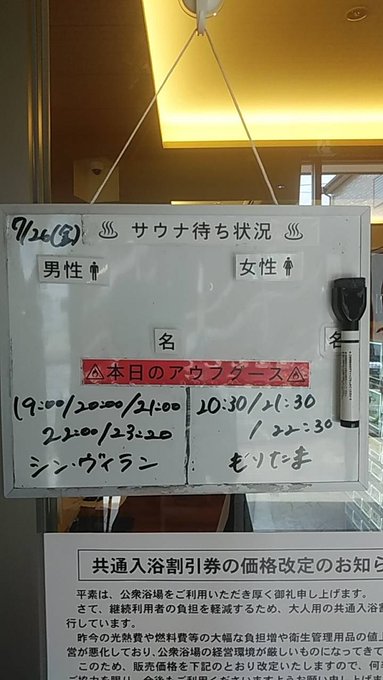 7/26(金) ♨ サウナ待ち状況 ♨
男性 女性
名 名
本日のアウフグース
19:00/20:00/21:00 20:30/21:30
22:00/23:20 / 22:30
シン・ヴィラン もりたま
共通入浴割引券の価格改定のお知ら
平素は、公衆浴場をご利用いただき厚く御礼申し上げます。
さて、継続利用者の負担を軽減するため、大人用の共通入浴割
行しています。
昨今の光熱費や燃料費等の大幅な負担増や衛生管理用品の値上
営が悪化しており、公衆浴場の経営環境が厳しいものになってきて
このため、販売価格を下記のとおり改定いたしますので、何卒